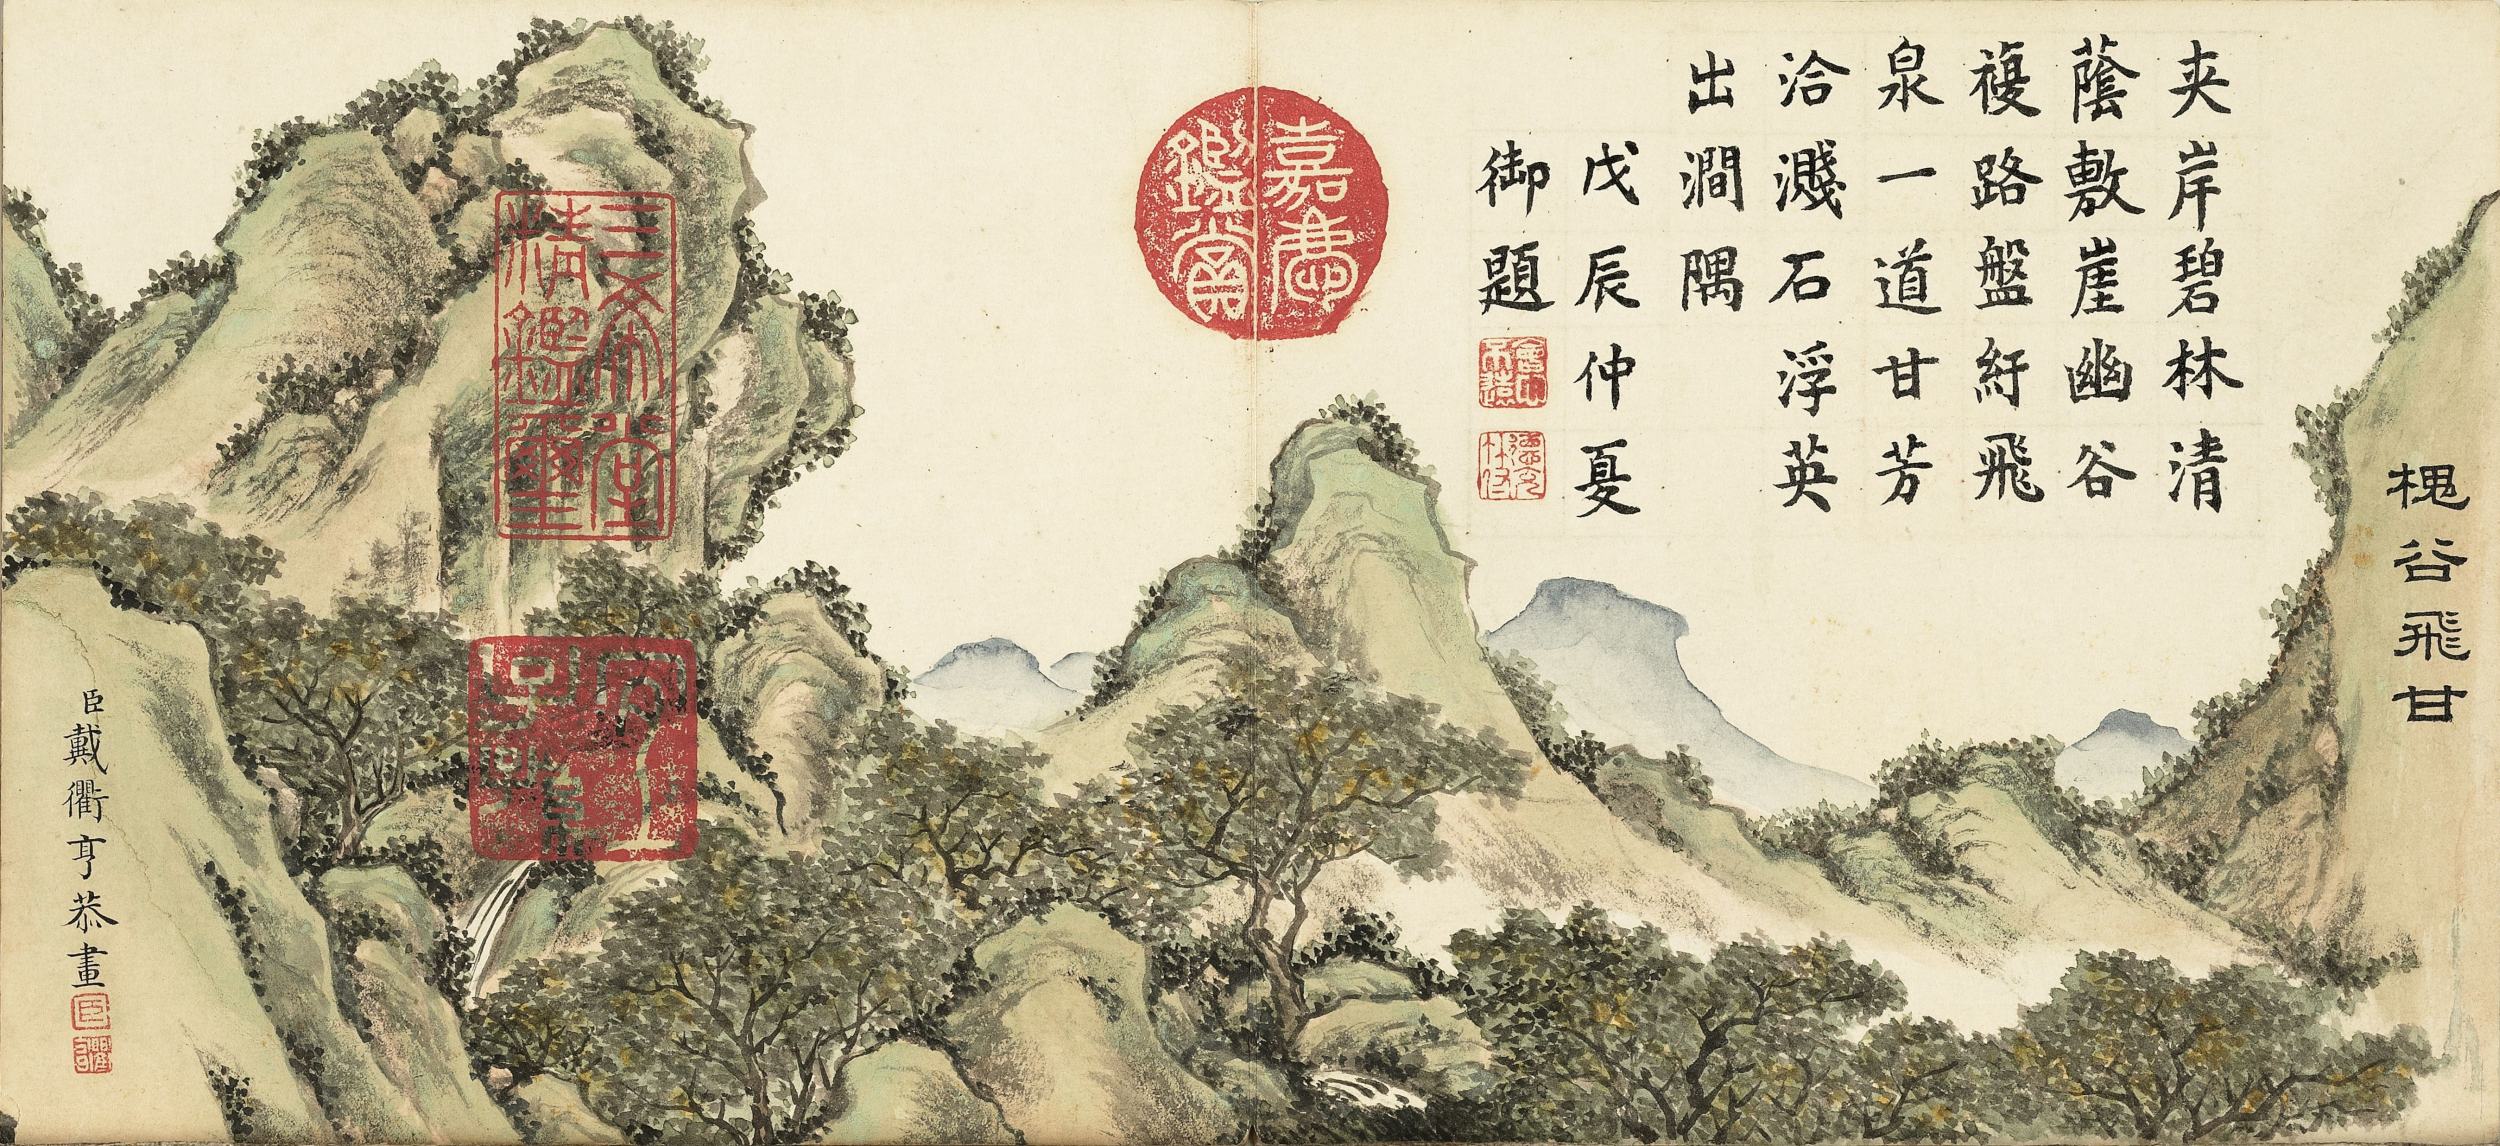 槐谷飛甘
夾岸碧林清
蔭敷崖幽谷
複路盤紆飛
泉一道甘芳
洽濺石浮英
出澗隅
戊辰仲夏
御題
嘉慶
鑑賞
三希堂
精鑑璽
臣戴衢亨恭畫
臣